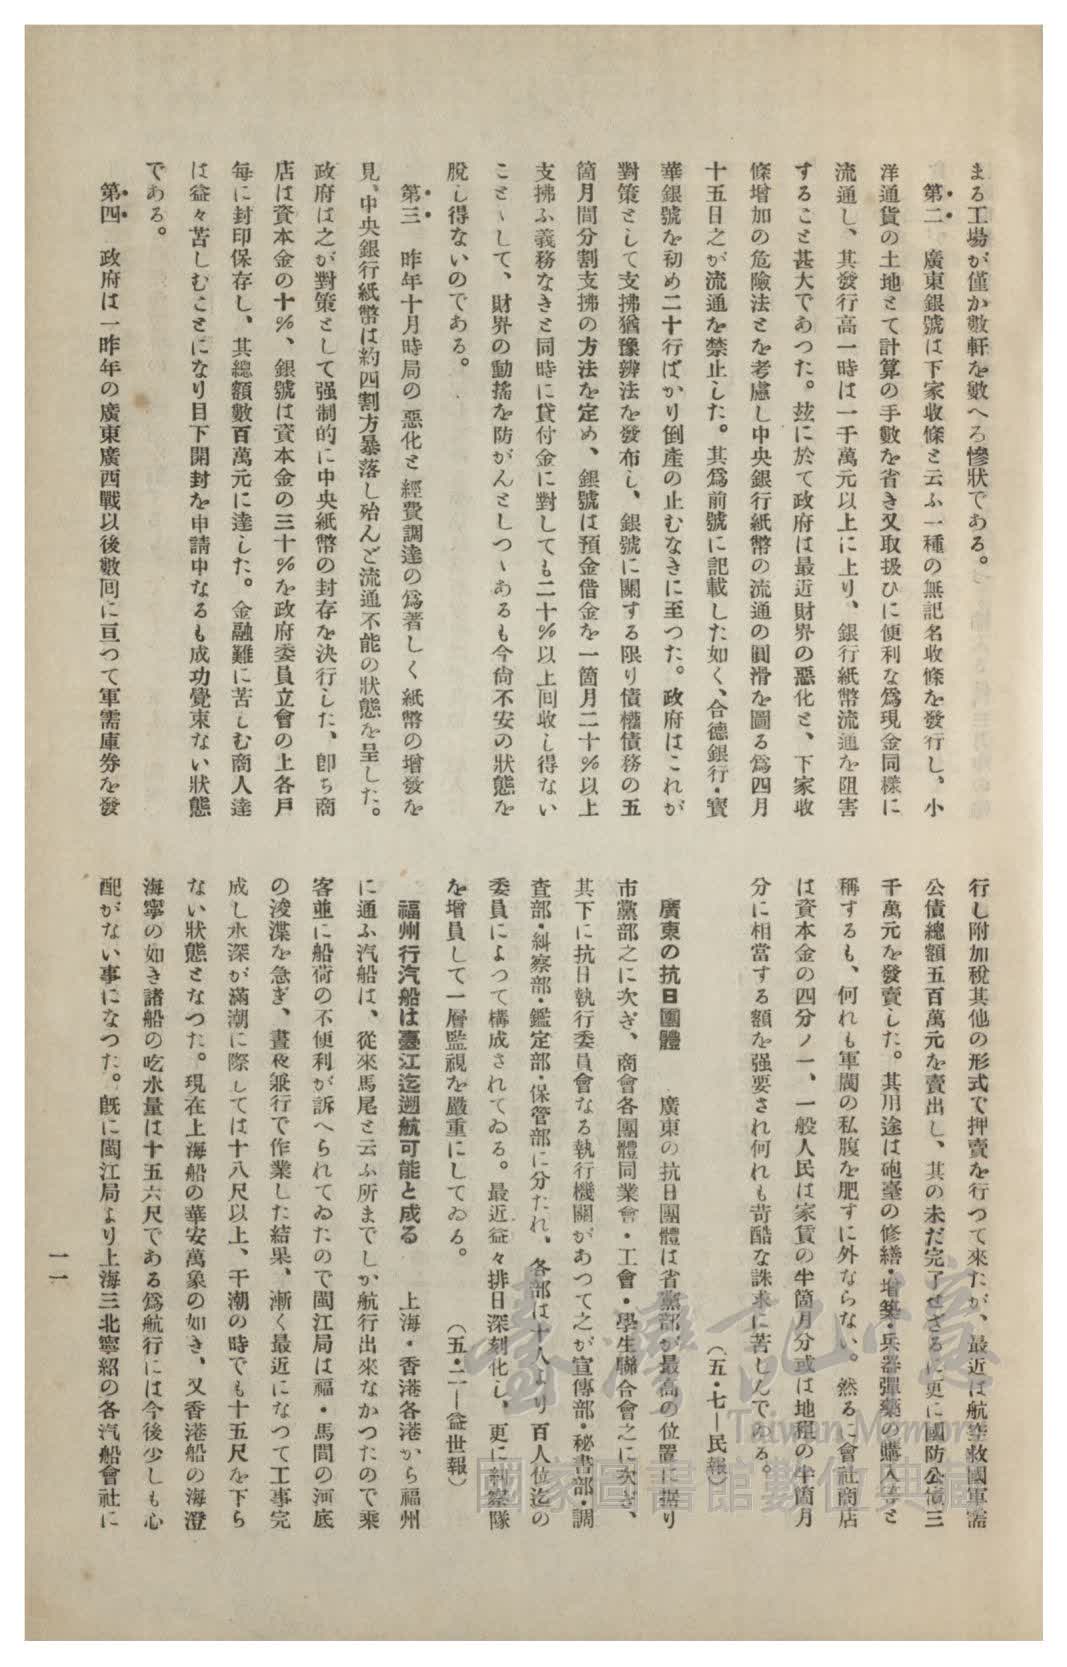 まる工場が僅か數軒を數へる慘狀である。
第二　廣東銀號は下家收條と云ふ一種の無記名收條を發行し、小
洋通貨の土地とて計算の手數を省き又取扱ひに便利な爲現金同樣に
流通し、其發行高一時は一千萬元以上に上り、銀行紙幣流通を阻害
すること甚大であつた。玆に於て政府は最近財界の惡化と、下家收
條增加の危險法とを考慮し中央銀行紙幣の流通の圓滑を圖る爲四月
十五日之が流通を禁止した。其爲前號に記載した如く、合德銀行・寶
華銀號を初め二十行ばかり倒產の止むなきに至つた。政府はこれが
對策として支拂猶豫辨法を發布し、銀號に關する限り債權債務の五
箇月間分割支拂の方法を定め、銀號は預金借金を一箇月二十％以上
支拂ふ義務なきと同時に貸付金に對しても二十％以上回收し得ない
こと丶して、財界の動搖を防がんとしつ丶あるも今尙不安の狀態を
脫し得ないのである。
第三　昨年十月時局の惡化と經費調達の爲著しく紙幣の增發を
見、中央銀行紙幣は約四割方暴落し殆んど流通不能の狀態を呈した。
政府は之が對策として强制的に中央紙幣の封存を決行した、卽ち商
店は資本金の十％、銀號は資本金の三十％を政府委員立會の上各戶
每に封印保存し、其總額數百萬元に達した。金融難に苦しむ商人達
は益々苦しむことになり目下開封を申請中なるも成功覺束ない狀態
である。
第四　政府は一昨年の廣東廣西戰以後數回に亘つて軍需庫券を發
行し附加稅其他の形式で押賣を行つて來たが、最近は航空救國軍需
公債總額五百萬元を賣出し、其の未だ完了せざるに更に國防公債三
千萬元を發賣した。其用途は砲臺の修繕・增築・兵器彈藥の購入等と
稱するも、何れも軍閥の私腹を肥すに外ならない。然るに會社商店
は資本金の四分ノ一、一般人民は家賃の半箇月分或は地租の半箇月
分に相當する額を强要され何れも苛酷な誅求に苦しんでゐる。
（五・七―民報）
廣東の抗日團體　廣東の抗日團體は省黨部が最高の位置に据り
市黨部之に次ぎ、商會各團體同業會・工會・學生聯合會之に次ぎ、
其下に抗日執行委員會なる執行機關があつて之が宣傳部・秘書部・調
查部・糾察部・鑑定部・保管部に分たれ、各部は十人より百人位迄の
委員によつて構成されてゐる。最近益々排日深刻化し、更に糾察隊
を增員して一層監視を嚴重にしてゐる。　（五・二―益世報）
福州行汽船は臺江迄遡航可能と成る　上海・香港各港から福州
に通ふ汽船は、從來馬尾と云ふ所までしか航行出來なかつたので乘
客並に船荷の不便利が訴へられてゐたので閩江局は福・馬間の河底
の浚渫を急ぎ、晝夜兼行で作業した結果、漸く最近になつて工事完
成し水深が滿潮に際しては十八尺以上、干潮の時でも十五尺を下ら
ない狀態となつた。現在上海船の華安萬象の如き、又香港船の海澄
海寧の如き諸船の吃水量は十五六尺である爲航行には今後少しも心
配がない事になつた。旣に閩江局より上海三北寧紹の各汽船會社に
一一
臺灣記憶
Taiwan Memory
國家圖書館數位典藏